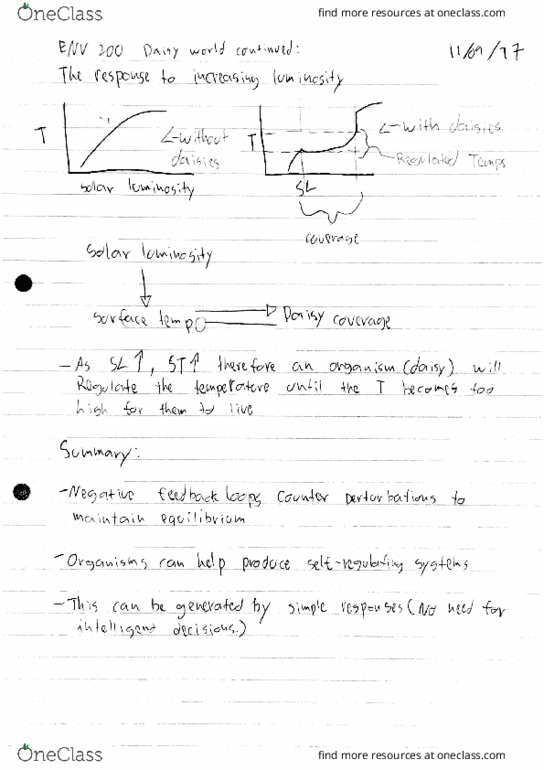 OneClass
find more resources at oneclass.com
ENV 200 Daisy world continued:
11/09/17
The response to increasing luminosity
T
<-without daisies
solar luminosity
T
<-with daisies
Regulated Temps
SL
coverage
Solar luminosity
surface temp
Daisy coverage
-As SL↑, ST↑ therefore an organism (daisy) will
Regulate the temperature until the T becomes too
high for them to live
Summary:
-Negative feedback loops counter perturbations to
maintain equilibrium
-Organisms can help produce self-regulating systems
-This can be generated by simple responses (No need for
intelligent decisions.)
OneClass
find more resources at oneclass.com